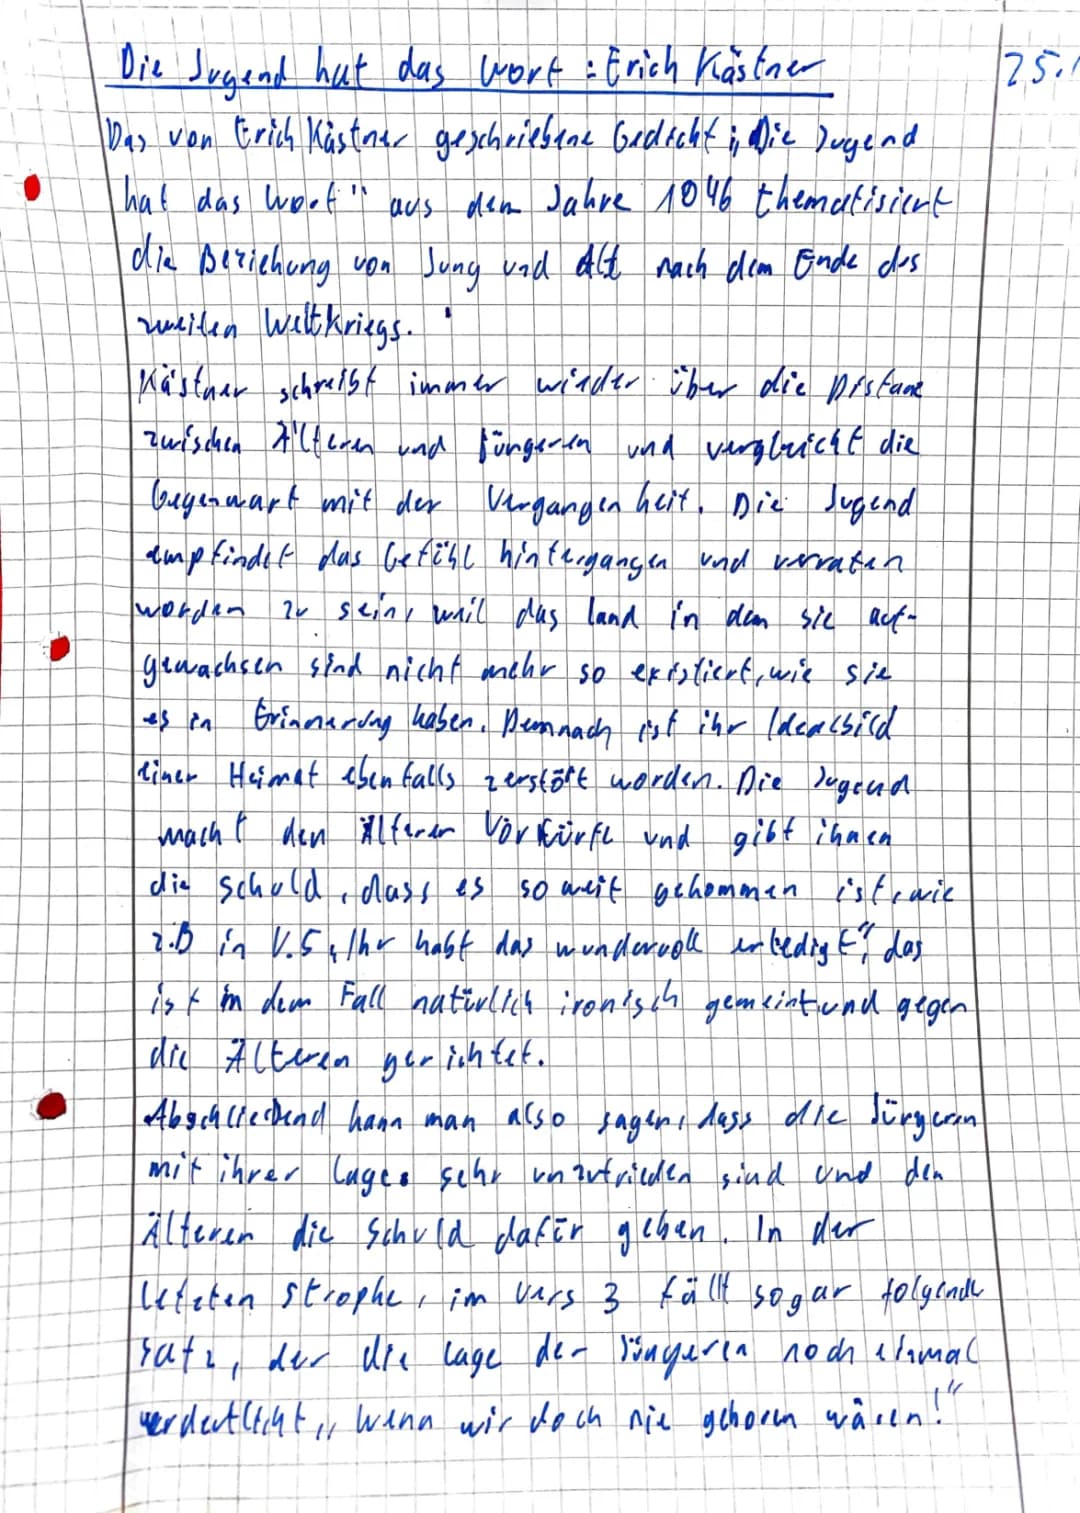 Die Jugend hat das Wort : Erich Kästner 25.
Das von Erich Kästner geschriebene Gedicht „Die Jugend
hat das Wort" aus dem Jahre 1946 thematisiert
die Beziehung von Jung und Alt nach dem Ende des
zweiten Weltkriegs.
Kästner schreibt immer wieder über die Distanz
zwischen Älteren und Jüngeren und vergleicht die
Gegenwart mit der Vergangenheit. Die Jugend
empfindet das Gefühl hintergangen und verraten
worden zu sein, weil das land in dem sie auf-
gewachsen sind nicht mehr so existiert, wie sie
es in Erinnerung haben. Demnach ist ihr Idealbild
einer Heimat ebenfalls zerstört worden. Die Jugend
macht den Älteren Vorwürfe und gibt ihnen
die schuld, dass es so weit gekommen ist, wie
z.B in V.5 „Ihr habt das wundervoll erledigt", das
ist in dem Fall natürlich ironisch gemeint und gegen
die Älteren gerichtet.
Abschließend kann man also sagen, dass die Jüngeren
mit ihrer Lage sehr unzufrieden sind und den
Älteren die Schuld dafür geben. In der
letzten Strophe, im Vers 3 fällt sogar folgende
Satz, der die Lage der Jüngeren noch einmal
verdeutlicht „Wenn wir doch nie geboren wären!"